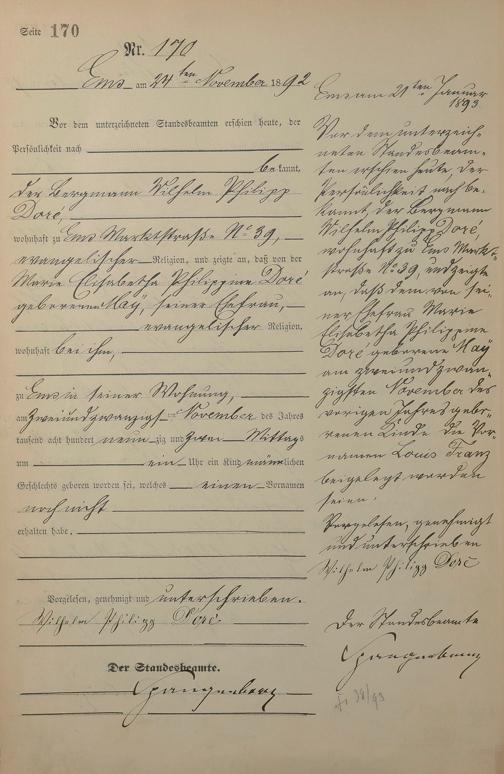 Seite 170
Nr. 170
Ems am 24ten November 1892
Vor dem unterzeichneten Standesbeamten erschien heute, der
Persönlichkeit nach
bekannt,
der Bergmann Wilhelm Philipp
Doré,
wohnhaft zu Ems Marktstraße No 39,
evangelischer Religion, und zeigte an, daß von der
Marie Elisabetha Philippine Doré
geborenen May, seiner Ehefrau,
evangelischer Religion,
wohnhaft bei ihm,
zu Ems in seiner Wohnung,
am zweiundzwanzigst November des Jahres
tausend acht hundert neunzig und zwei Mittags
um ein Uhr ein Kind männlichen
Geschlechts geboren worden sei, welches einen Vornamen
noch nicht
erhalten habe.
Vorgelesen, genehmigt und unterschrieben.
Wilhelm Philipp Doré
Der Standesbeamte.
Spangenberg
Ems am 21ten Januar
1893
Vor dem unterzeich-
neten Standesbeam-
ten erschien heute, der
Persönlichkeit nach be-
kannt, der Bergmann
Wilhelm Philipp Doré,
wohnhaft zu Ems Markt-
straße No 39, und zeigte
an, daß dem von sei-
ner Ehefrau Marie
Elisabetha Philippine
Doré geborene May
am zweiundzwan-
zigsten November des
vorigen Jahres gebo-
renen Kinde die Vor-
namen Louis Franz
beigelegt worden
seien.
Vorgelesen, genehmigt
und unterschrieben
Wilhelm Philipp Doré
Der Standesbeamte
Spangenberg